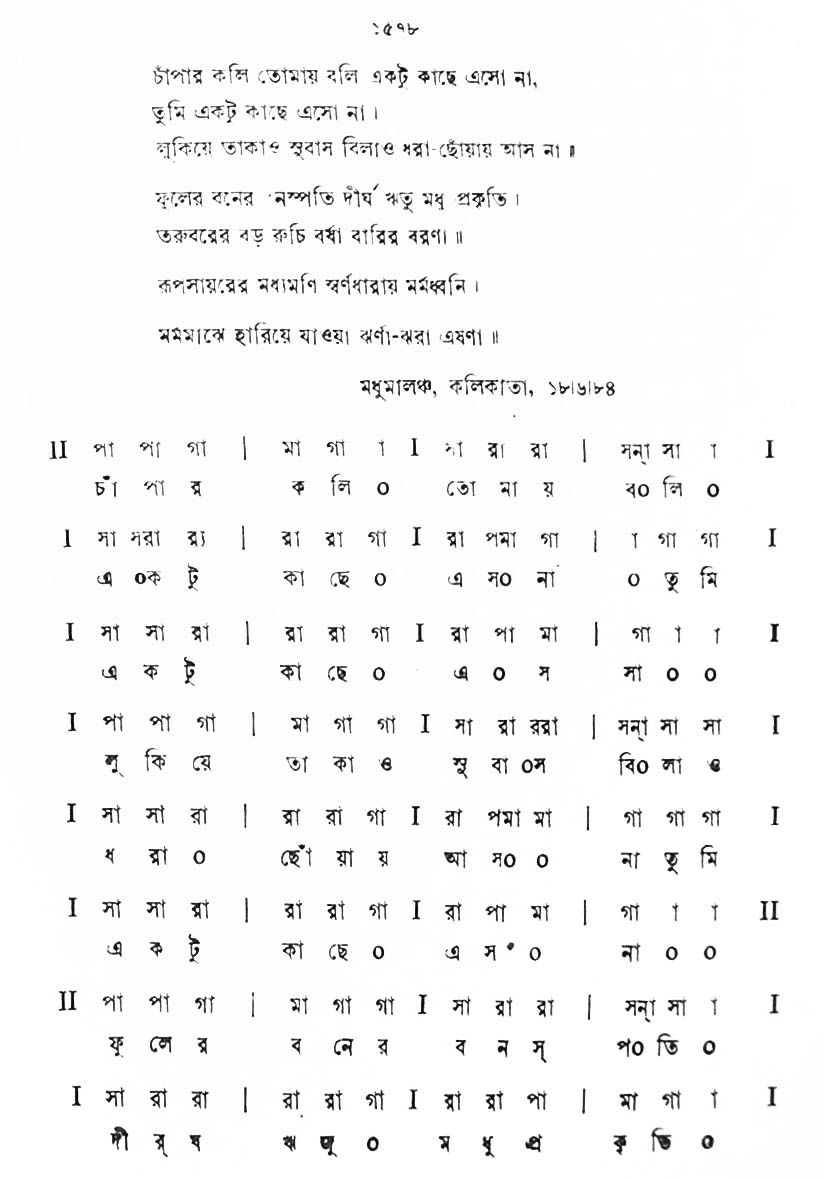 ১৫৭৮
চাঁপার কলি তোমায় বলি একটু কাছে এসো না,
তুমি একটু কাছে এসো না ।
লুকিয়ে তাকাও সুবাস বিলাও ধরা-ছোঁয়ায় আস না ॥
ফুলের বনের নস্পতি দীর্ঘ ঋতু মধু প্রকৃতি ।
তরুবরের বড় রুচি বর্ষা বারির বরণা ॥
রূপসায়রের মধ্যমণি স্বর্ণধারায় মর্মধ্বনি ।
মর্মমাঝে হারিয়ে যাওয়া ঝর্ণা-ঝরা এষণা ॥
মধুমালঞ্চ, কলিকাতা, ১৮।৬।৮৪
II পা পা গা | মা গা া I সা রা রা | সন্া সা া I
চাঁ পা র ক লি ০ তো মা য় ব০ লি ০
I সা সরা রা | রা রা গা I রা পমা গা | া গা গা I
এ ০ক টু কা ছে ০ এ স০ না ০ তু মি
I সা সা রা | রা রা গা I রা পা মা | গা া া I
এ ক টু কা ছে ০ এ ০ স সা ০ ০
I পা পা গা | মা গা গা I সা রা ররা | সন্া সা সা I
লু কি য়ে তা কা ও সু বা ০স বি০ লা ও
I সা সা রা | রা রা গা I রা পমা মা | গা গা গা I
ধ রা ০ ছোঁ য়া য় আ স০ ০ না তু মি
I সা সা রা | রা রা গা I রা পা মা | গা া া II
এ ক টু কা ছে ০ এ স ০ না ০ ০
II পা পা গা | মা গা গা I সা রা রা | সন্া সা া I
ফু লে র ব নে র ব ন স্ প০ তি ০
I সা রা রা | রা রা গা I রা রা পা | মা গা া I
দী র্ ঘ ঋ জু ০ ম ধু প্র কৃ তি ০